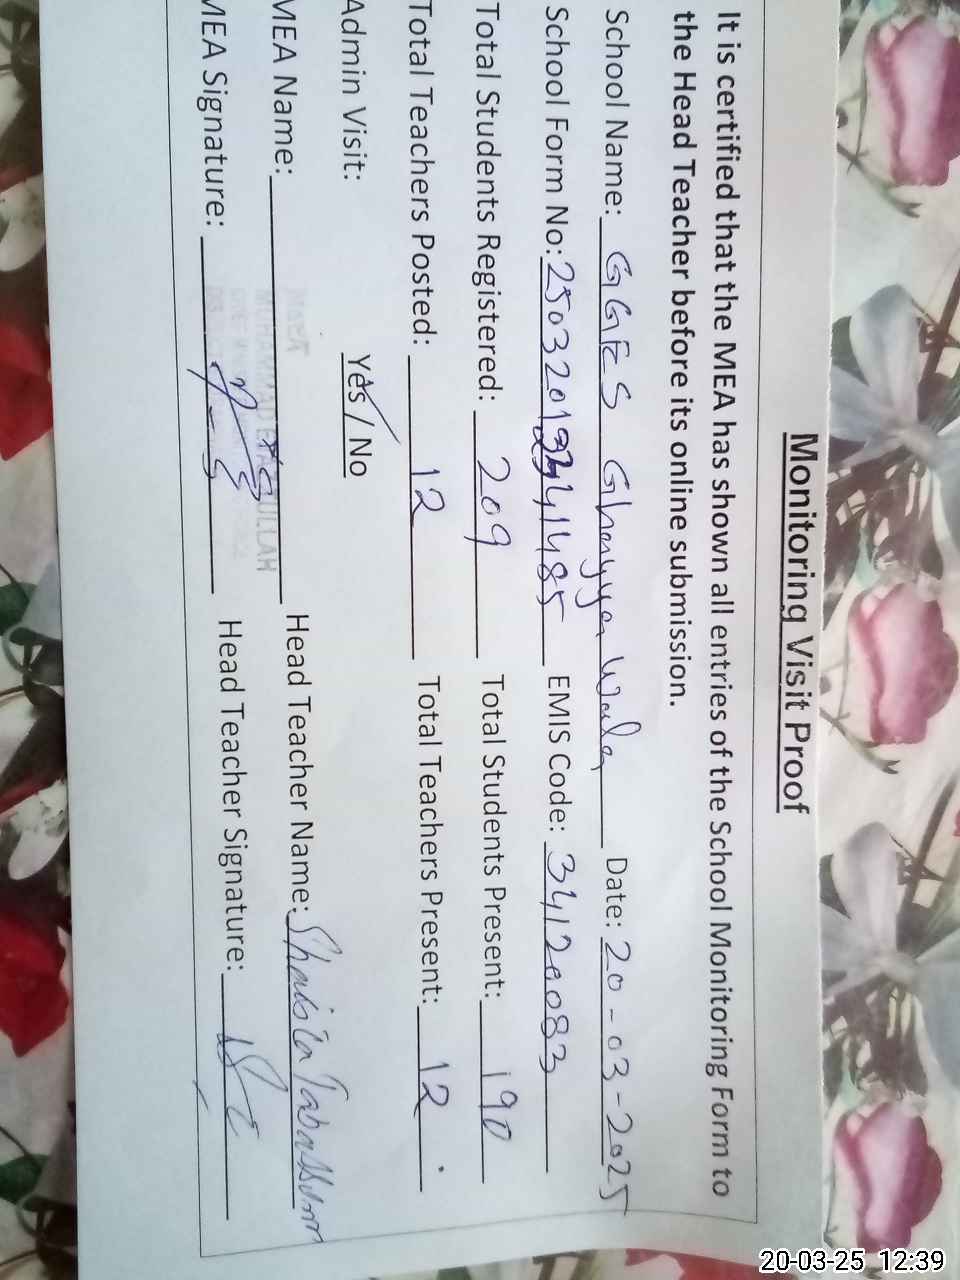 Monitoring Visit Proof
It is certified that the MEA has shown all entries of the School Monitoring Form to
the Head Teacher before its online submission.
School Name: GGES Ghayyer Wala Date: 20-03-2025
School Form No: EMIS Code: 34120083
Total Students Registered: 209 Total Students Present: 190
Total Teachers Posted: 12 Total Teachers Present: 12
Admin Visit: Yes / No
MEA Name: Head Teacher Name: Shaista Tabassum
MEA Signature: Head Teacher Signature:
20-03-25 12:39